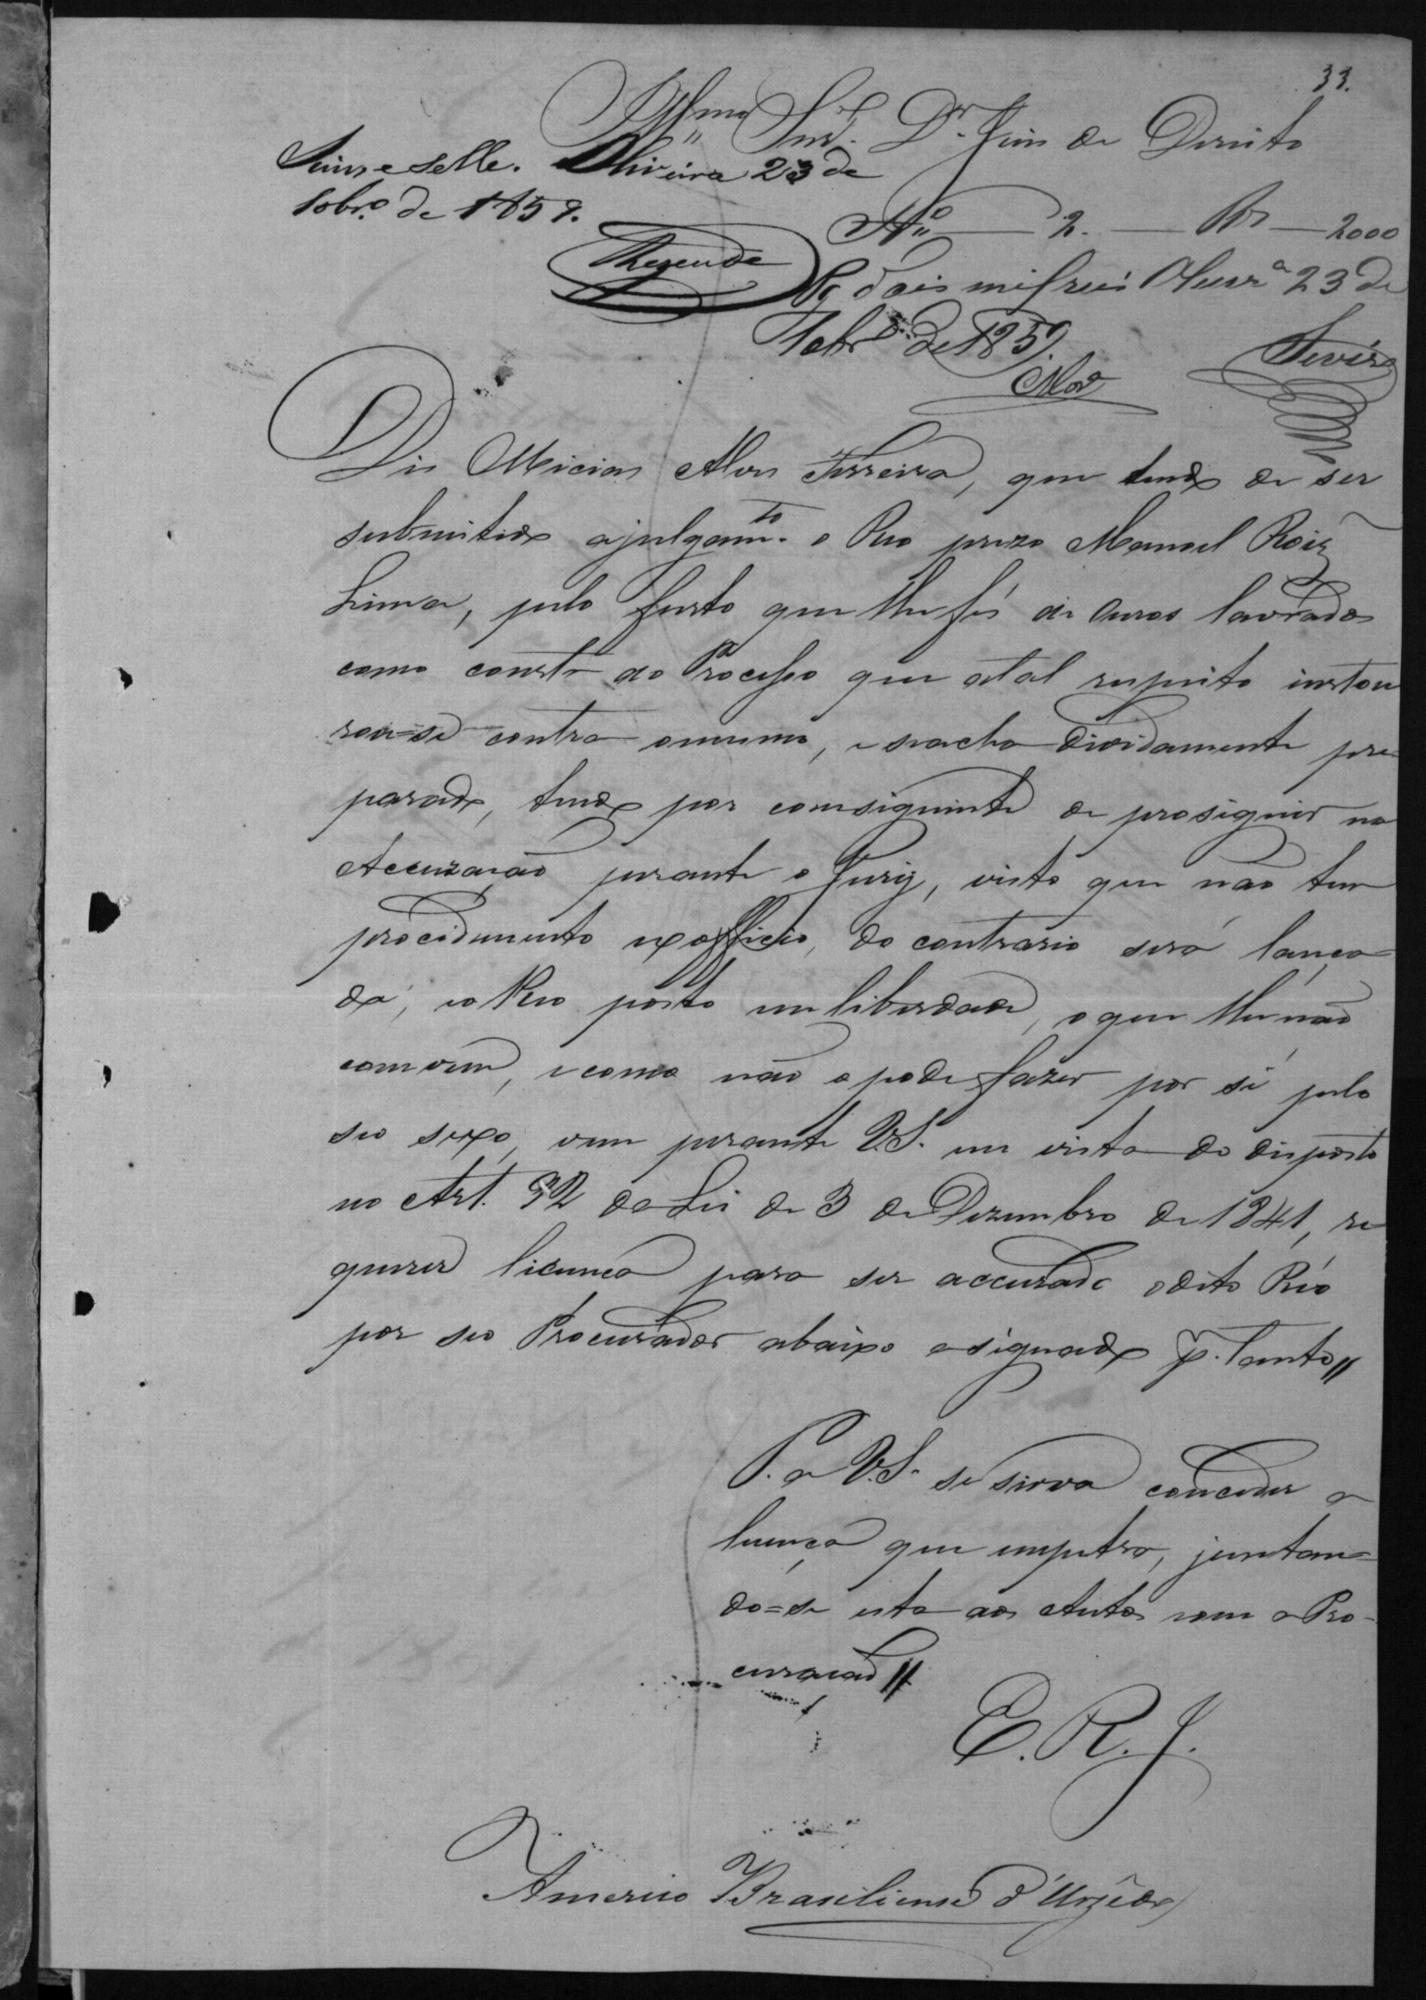 33.
Illmo Snr. Dr. Juis de Direito
Oliveira 23 de
Febr.o de 1859.
Rezende
No 2. Rs 2000
Pg dois mil reis Olivr.a 23 de
Febr.o de 1859.
Dis Micias Alves Ferreira, que tendo de ser
submitido a julgam.to o Reo prezo Manoel Roiz
Lima, pelo furto que lhe fés de ouros lavrados
como consta do Processo que atal respeito instou
rou=se contra omesmo, e seacha dividamente pre=
parado, tendo por comsiguinte de prosiguir na
Accuzação perante o Jury, visto que não tem
procidimento exofficio, do contrario será lança=
da, eo Reo posto em liberdade, o que lhe não
comvem, e como não o pode fazer por si pelo
seo sexo, vem perante V.S. em vista do disposto
no Art. 92 da Lei de 3 de Dezembro de 1841, re
querer licença para ser accusado odito Réo
por seo Procurador abaixo asignado p. tanto
P. a V.S. se sirva conceder a
licença que impetra, juntan=
do=se esta aos Autos com a Pro=
curação
E. R. J.
Americo Brasiliense d'Urzêdo